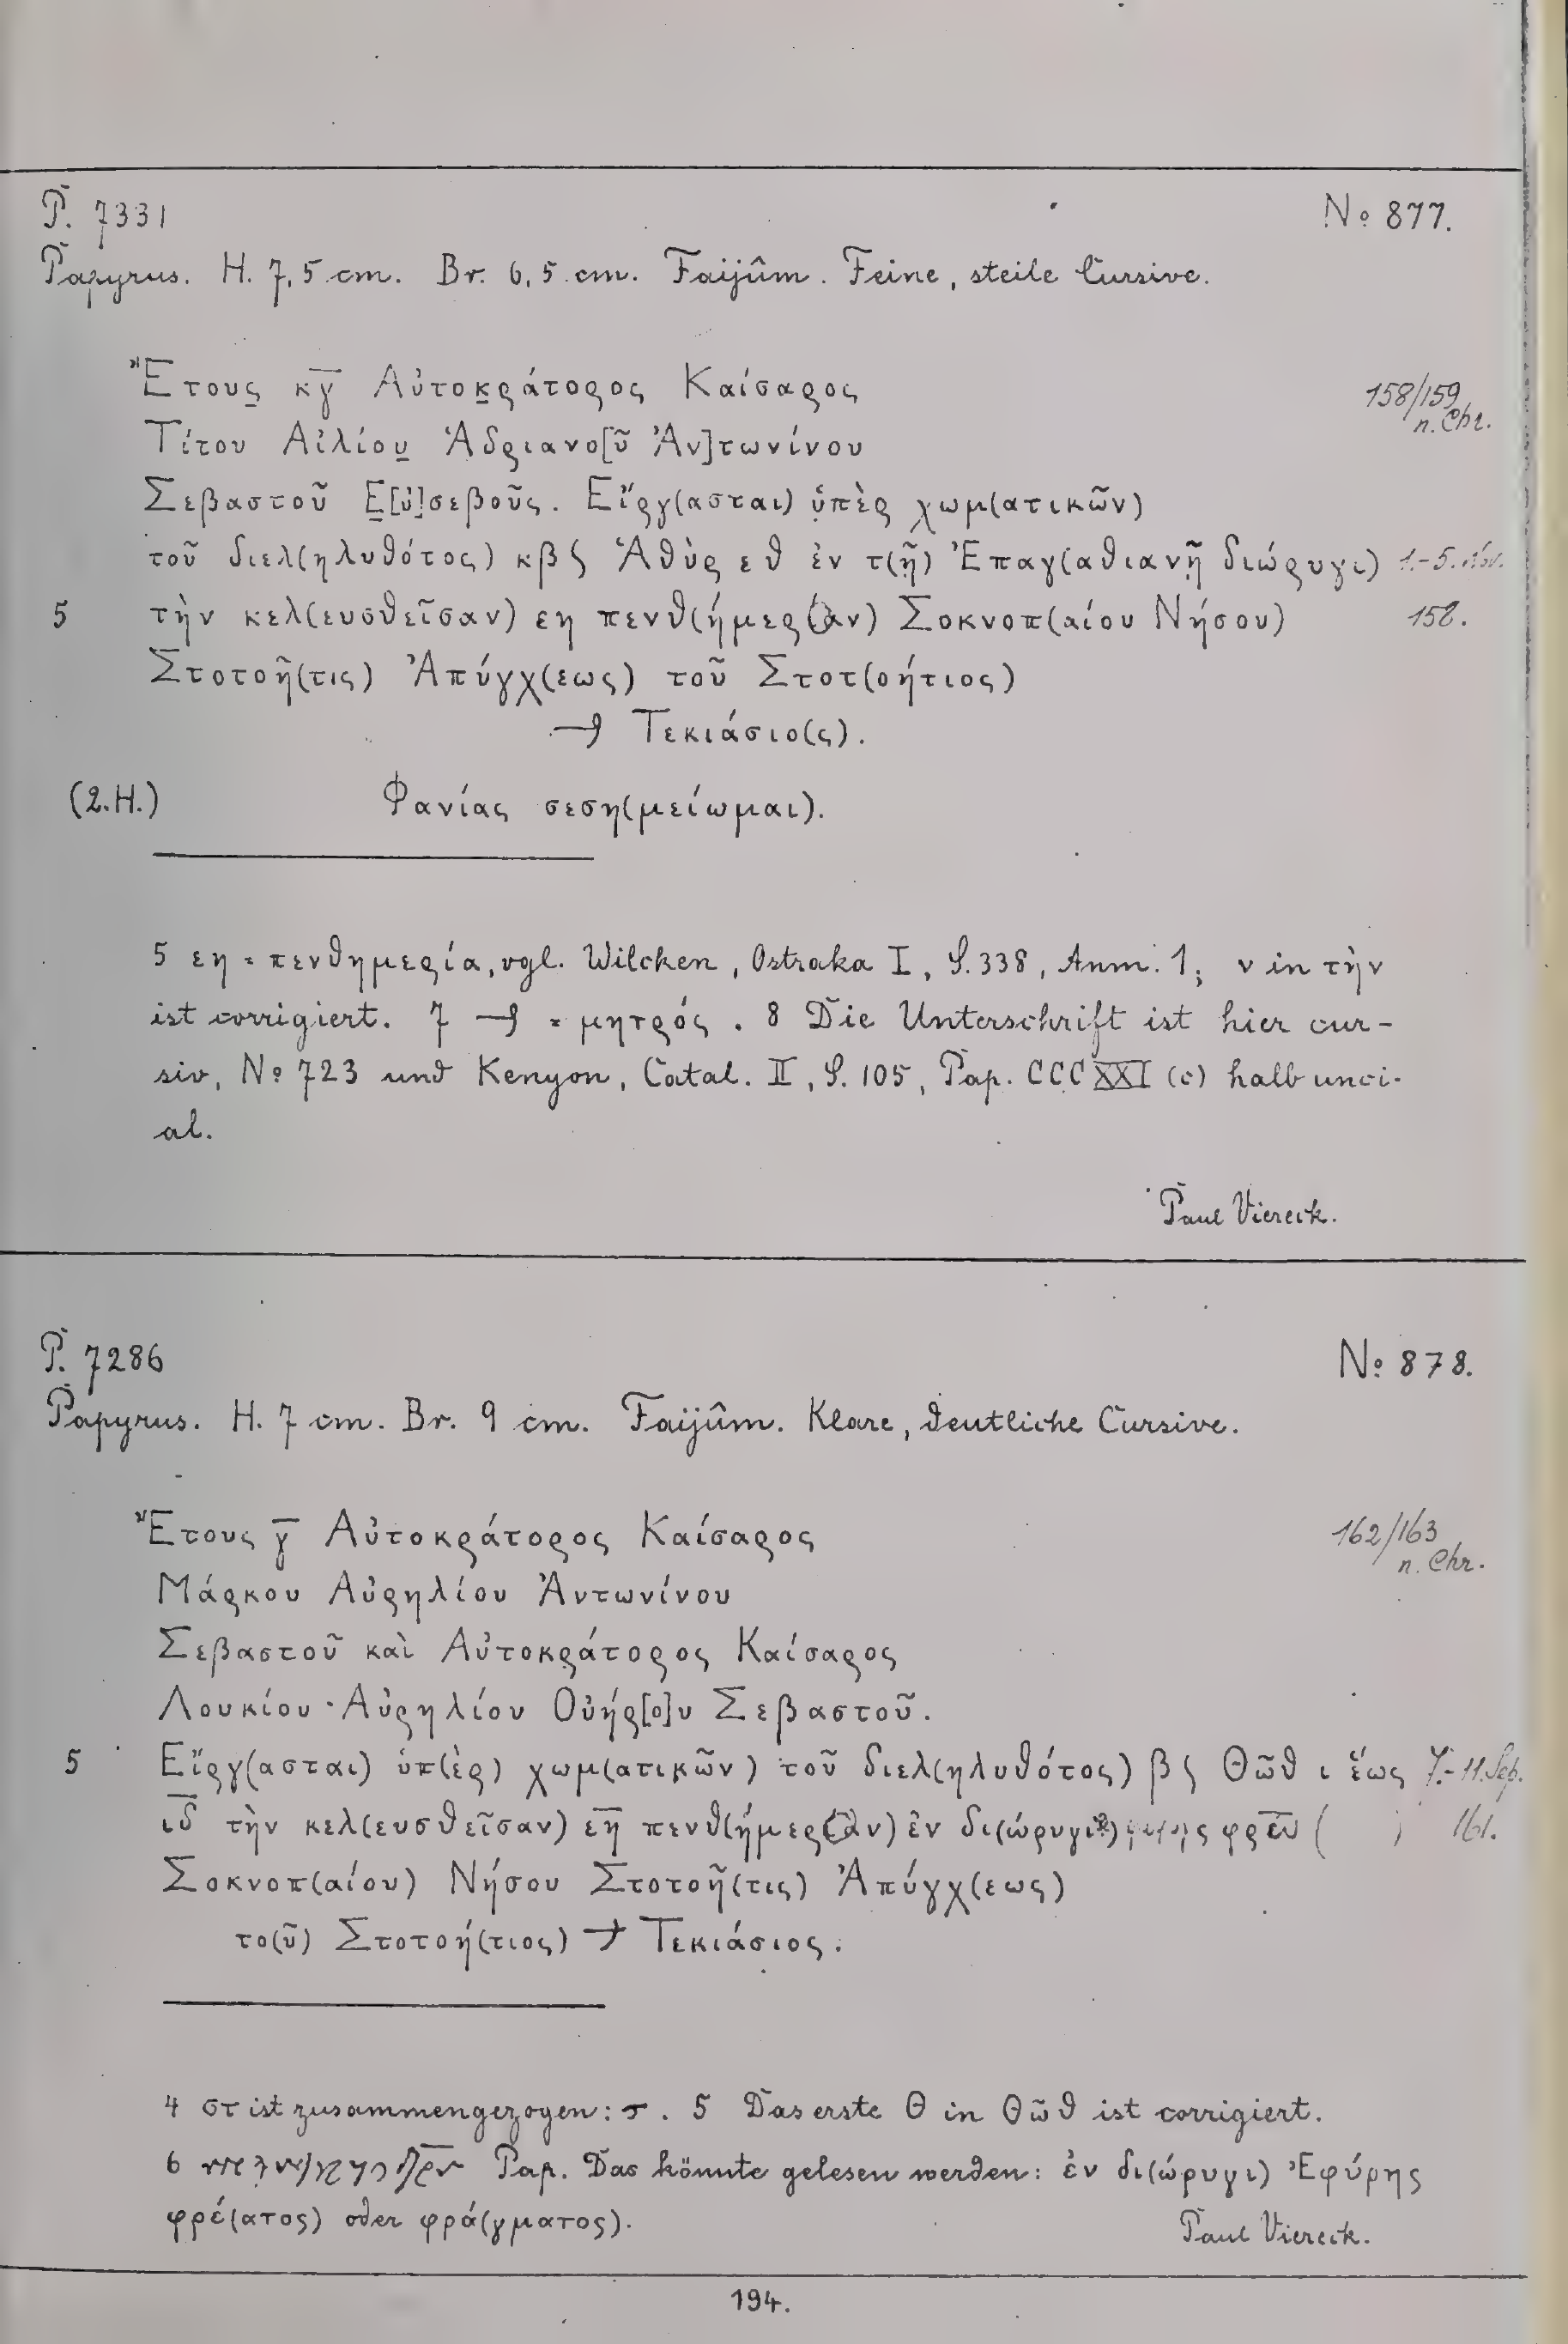 P. 7331 No 877.
Papyrus. H. 7,5 cm. Br. 6,5 cm. Faijûm. Feine, steile Cursive.
Ἔτους κγ̅ Αὐτοκράτορος Καίσαρος 158/159 n. Chr.
Τίτου Αἰλίου Ἁδριανο[ῦ Ἀν]τωνίνου
Σεβαστοῦ Ε[ὐ]σεβοῦς. Εἴργ(ασται) ὑπὲρ χωμ(ατικῶν)
τοῦ διελ(ηλυθότος) κβϛ Ἁθὺρ εθ ἐν τ(ῇ) Ἐπαγ(αθιανῇ διώρυγι) 1.-5. Nov.
5 τὴν κελ(ευσθεῖσαν) εη πενθ(ήμερ(αν) Σοκνοπ(αίου Νήσου) 158.
Στοτοῆ(τις) Ἀπύγχ(εως) τοῦ Στοτ(οήτιος)
Τεκιάσιο(ς).
(2.H.) Φανίας σεση(μείωμαι).
5 εη = πενθημερία, vgl. Wilcken, Ostraka I, S. 338, Anm. 1; ν in τὴν
ist corrigiert. 7 = μητρός. 8 Die Unterschrift ist hier cur-
siv, No 723 und Kenyon, Catal. II, S. 105, Pap. CCCXXI (c) halbunci-
al.
Paul Viereck.
P. 7286 No 878.
Papyrus. H. 7 cm. Br. 9 cm. Faijûm. Klare, deutliche Cursive.
Ἔτους γ̅ Αὐτοκράτορος Καίσαρος 162/163 n. Chr.
Μάρκου Αὐρηλίου Ἀντωνίνου
Σεβαστοῦ καὶ Αὐτοκράτορος Καίσαρος
Λουκίου Αὐρηλίου Οὐήρ[ο]υ Σεβαστοῦ.
5 Εἴργ(ασται) ὑπ(ὲρ) χωμ(ατικῶν) τοῦ διελ(ηλυθότος) βϛ Θῶθ ι ἕως 7.-11. Sep.
ιδ̅ τὴν κελ(ευσθεῖσαν) εη̅ πενθ(ήμερ(αν) ἐν δι(ώρυγι) φρεν ( ) 161.
Σοκνοπ(αίου) Νήσου Στοτοῆ(τις) Ἀπύγχ(εως)
το(ῦ) Στοτοή(τιος) Τεκιάσιος.
4 στ ist zusammengezogen: . 5 Das erste Θ in Θῶθ ist corrigiert.
6 Pap. Das könnte gelesen werden: ἐν δι(ώρυγι) Ἐφύρης
φρέ(ατος) oder φρά(γματος).
Paul Viereck.
194.